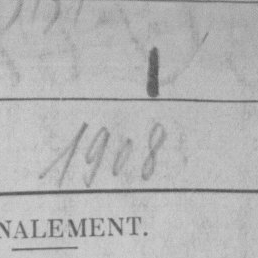 1908
NALEMENT.